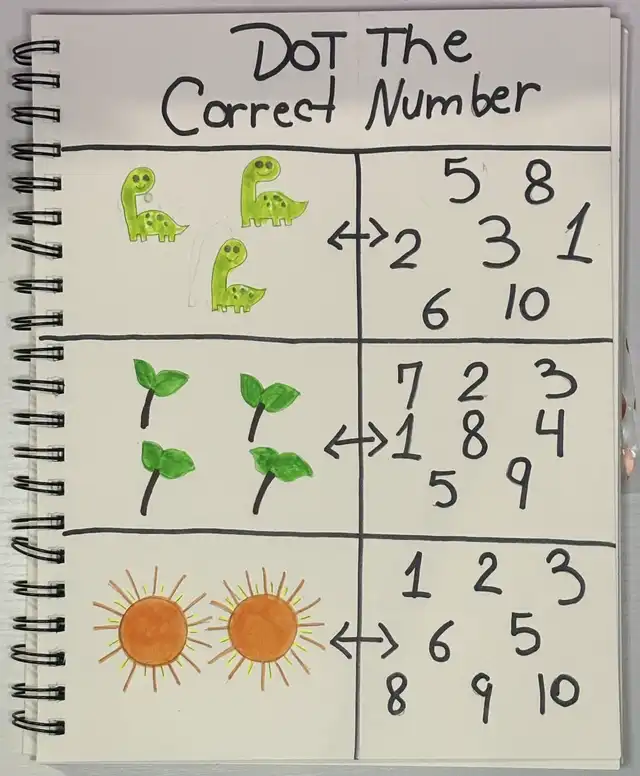 DOT The
Correct Number
5 8
2 3 1
6 10
7 2 3
1 8 4
5 9
1 2 3
6 5
8 9 10